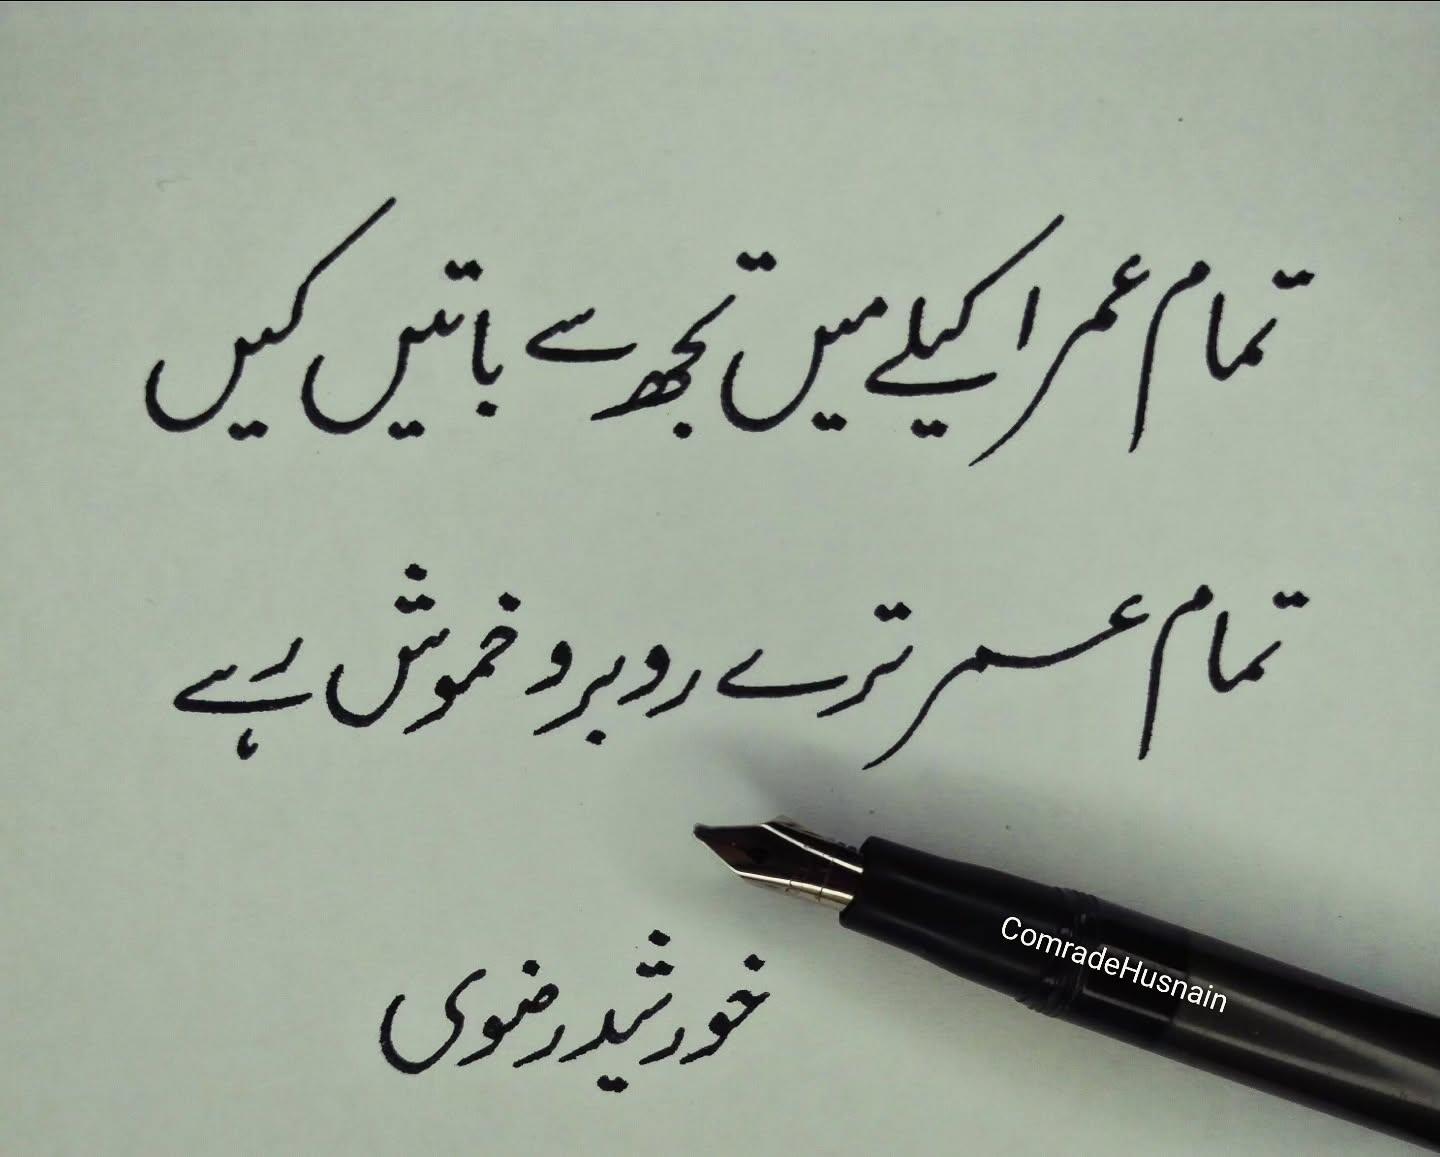 تمام عمر اکیلے میں تجھ سے باتیں کیں
تمام عمر ترے روبرو خموش رہے
خورشید رضوی
ComradeHusnain